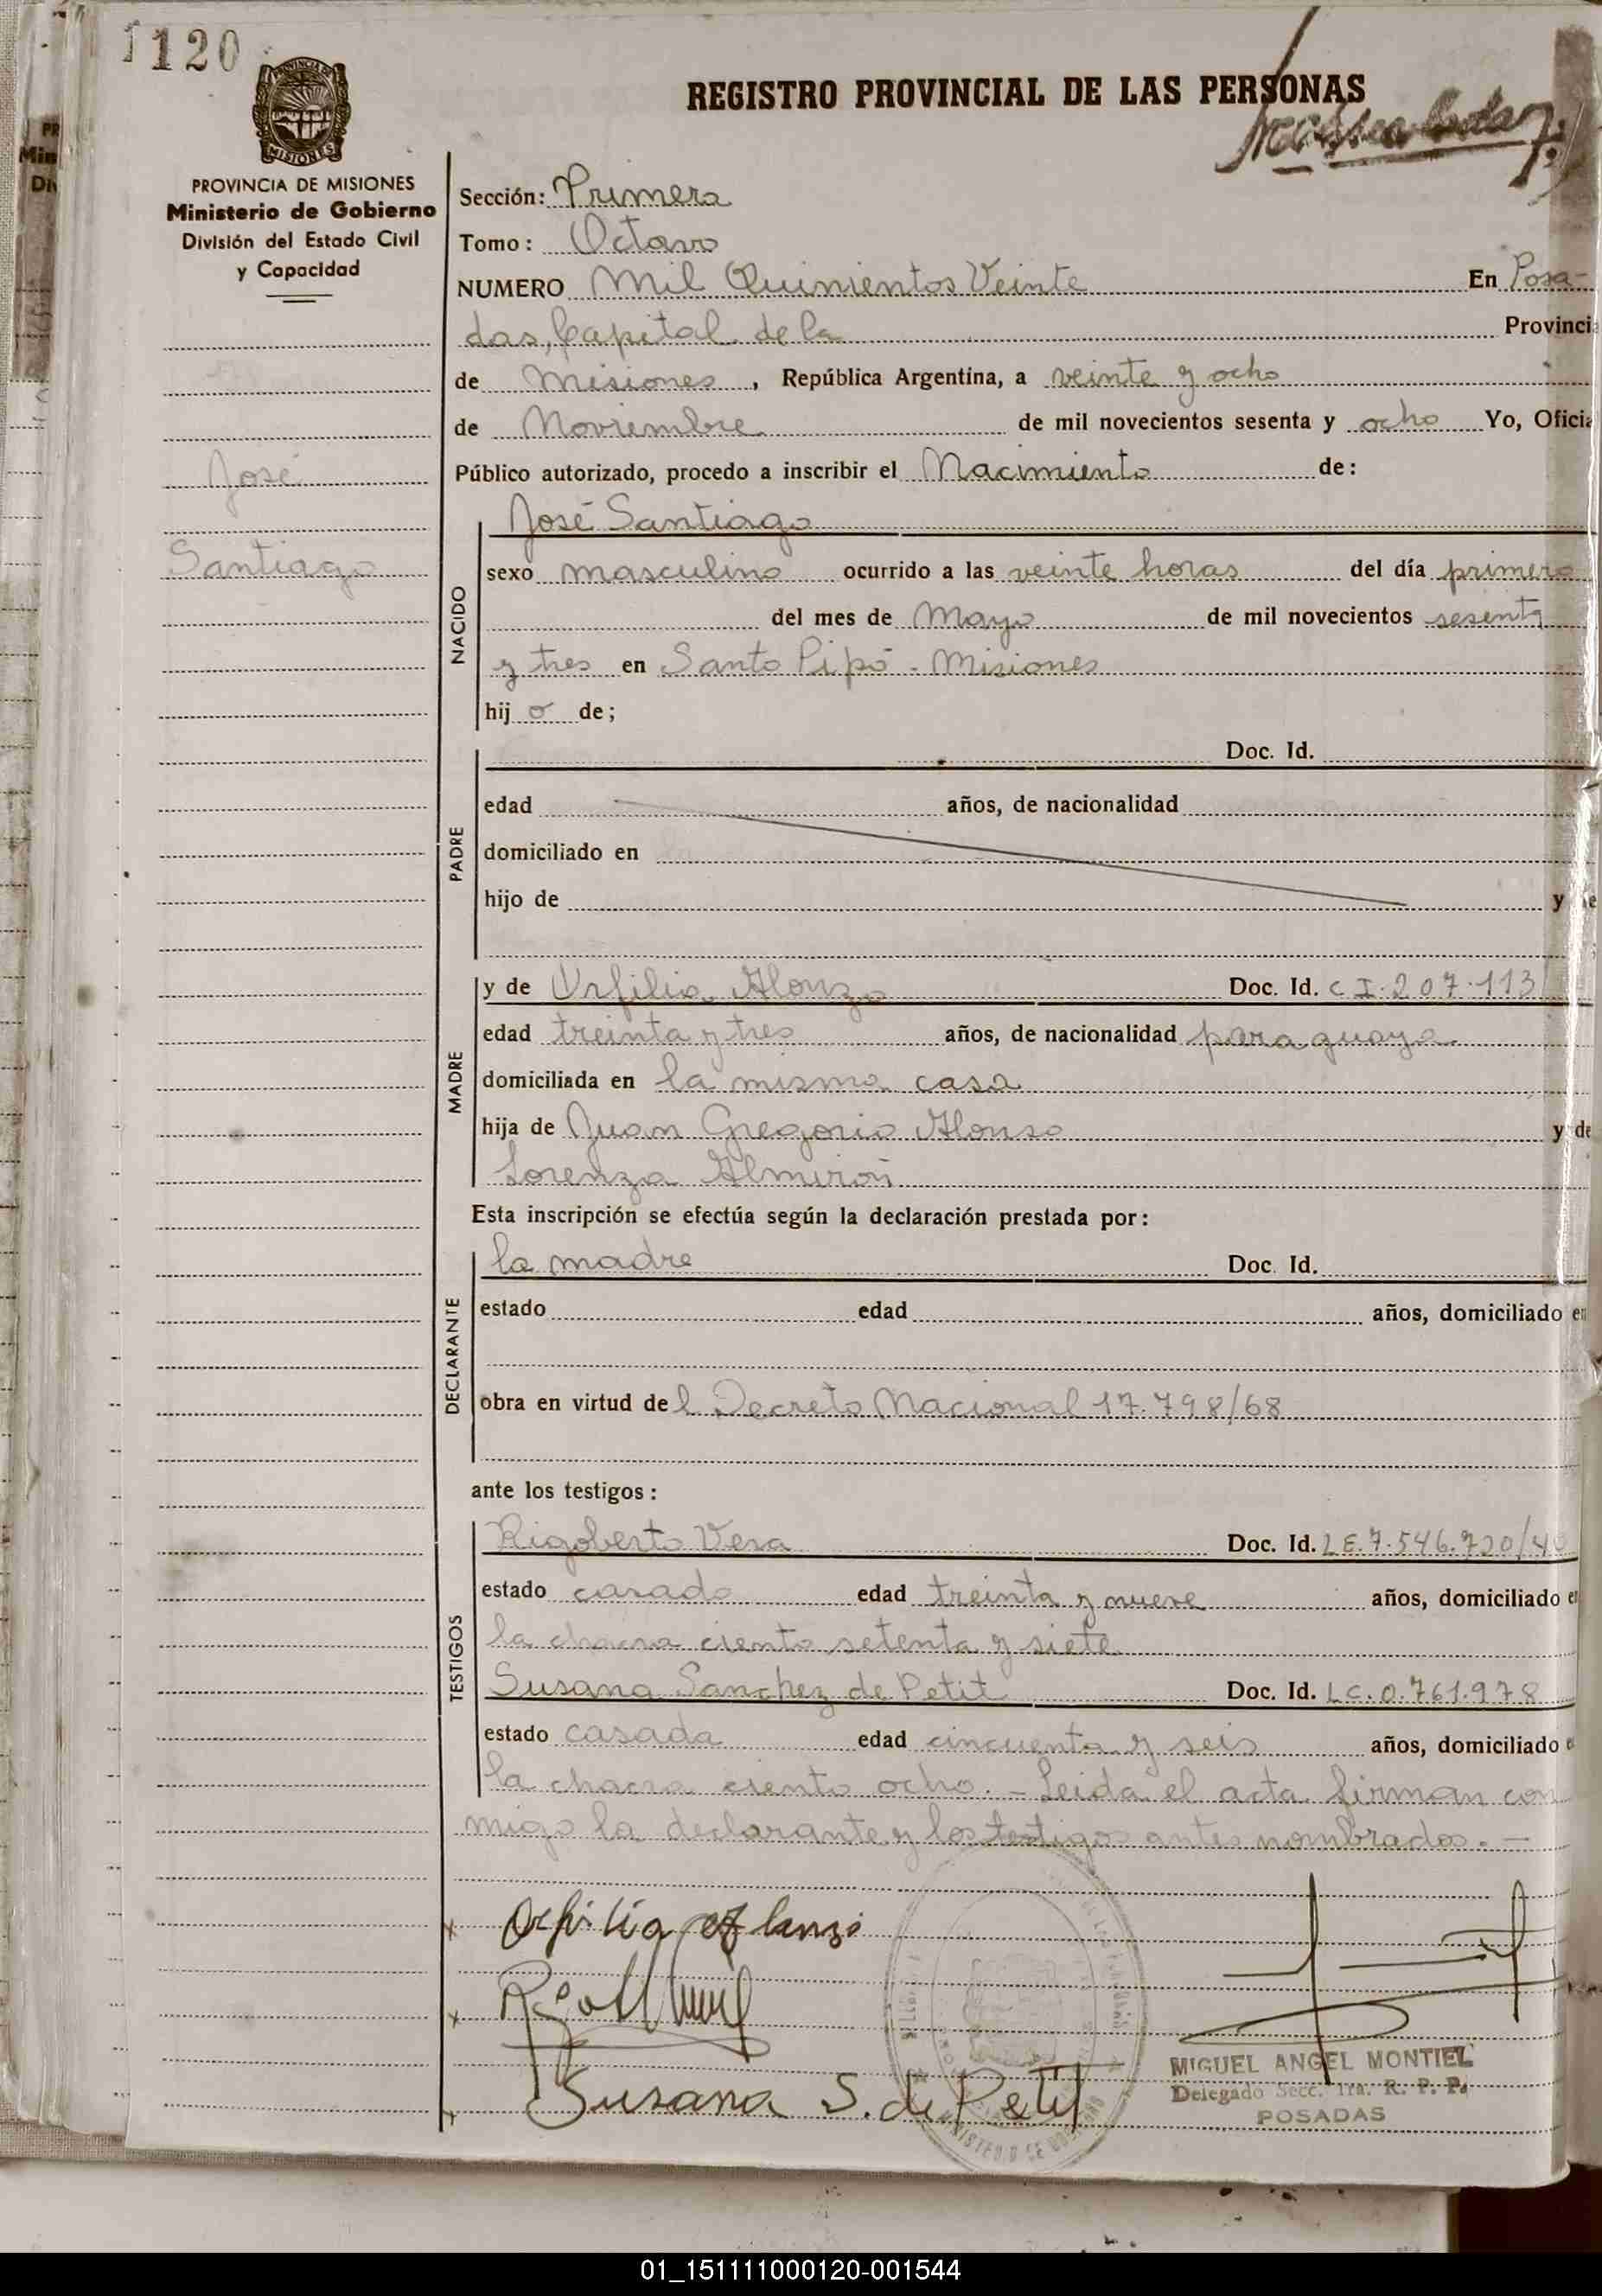 1120
REGISTRO PROVINCIAL DE LAS PERSONAS
PROVINCIA DE MISIONES
Ministerio de Gobierno
División del Estado Civil
y Capacidad
Sección: Primera
Tomo: Octavo
NUMERO Mil Quinientos Veinte En Posa-
das, Capital de la Provinci
de Misiones, República Argentina, a veinte y ocho
de Noviembre de mil novecientos sesenta y ocho Yo, Oficia
Público autorizado, procedo a inscribir el Nacimiento de:
José
Santiago
NACIDO
José Santiago
sexo masculino ocurrido a las veinte horas del día primero
del mes de Mayo de mil novecientos sesenta
y tres en Santo Pipó - Misiones
hijo de;
PADRE
Doc. Id.
edad años, de nacionalidad
domiciliado en
hijo de y de
MADRE
y de Orfilia Alonzo Doc. Id. C I. 207.113
edad treinta y tres años, de nacionalidad paraguaya
domiciliada en la misma casa
hija de Juan Gregorio Alonso y de
Lorenza Almirón
Esta inscripción se efectúa según la declaración prestada por:
DECLARANTE
la madre Doc. Id.
estado edad años, domiciliado en
obra en virtud del Decreto Nacional 17.798/68
ante los testigos:
TESTIGOS
Rigoberto Vera Doc. Id. LE. 7.546.720/40
estado casado edad treinta y nueve años, domiciliado en
la chacra ciento setenta y siete
Susana Sanchez de Petit Doc. Id. LC. 0.761.978
estado casada edad cincuenta y seis años, domiciliado e
la chacra ciento ocho. - Leida el acta firman con
migo la declarante y los testigos antes nombrados. -
Orfilia Alonzo
Susana S. de Petit
MIGUEL ANGEL MONTIEL
Delegado Secc. 1ra. R. P. P.
POSADAS
01_151111000120-001544